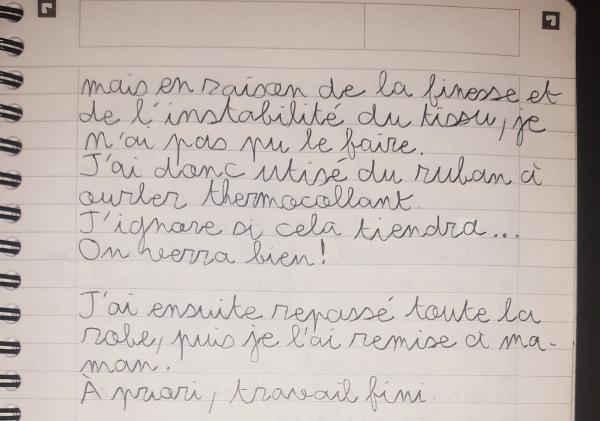 mais en raison de la finesse et
de l'instabilité du tissu, je
n'ai pas pu le faire.
J'ai donc utisé du ruban à
ourler thermocollant.
J'ignore si cela tiendra...
On verra bien !
J'ai ensuite repassé toute la
robe, puis je l'ai remise à ma-
man.
À priori, travail fini.